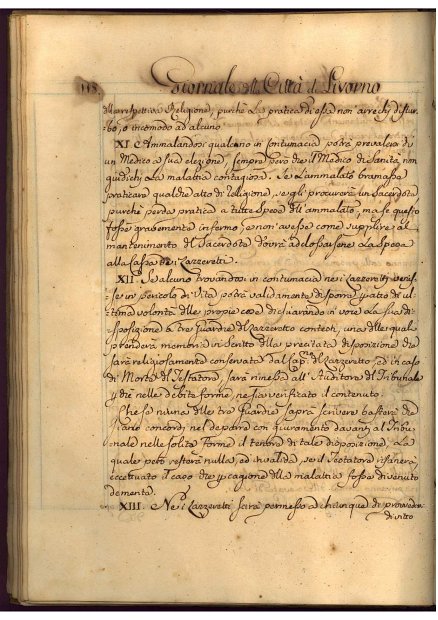 118. Giornale della Città di Livorno
rispettiva Religione, purchè la pratica di essa non arrechi distur-
bo, o incomodo ad alcuno
XI. Ammalandosi qualcuno in contumacia potrà prevalersi di
un Medico a sua elezione, sempre però che il Medico di Sanità, non
giudichi la malattia contagiosa. Se l'ammalato bramasse
praticare qualche atto di religione, se gli procurerà un Sacerdote
purchè perda pratica a tutte Spese dell'ammalato, ma se questo
fosse gravemente infermo, e non avesse come supplire al
mantenimento del Sacerdote dovrà la Spesa
alla Cassa dei Lazzeretti.
XII. Se alcuno trovandosi in contumacia nei Lazzeretti venis-
se in pericolo di Vita potrà validamente disporre per atto di ul-
tima volontà delle proprie cose dichiarando in voce la sua di-
sposizione a tre Guardie del Lazzeretto contesti, una delle quali
prenderà memoria in Scritto della precitata disposizione che
sarà religiosamente conservata dal Cap.º del Lazzeretto, ed in caso
di Morte del Testatore, sarà rimessa all'Auditore del Tribunale
che nelle debite forme, ne sia verificato il contenuto.
Che se niuna delle tre Guardie saprà scrivere basterà che
siano concordi nel deporre con giuramento davanti al Tribu-
nale nelle solite forme il tenore di tale disposizione, la
quale però resterà nulla, ed invalida, se il Testatore risanerà,
eccettuato il caso che per cagione della malattia fosse divenuto
demente.
XIII. Nei Lazzeretti sarà permesso a chiunque di provveder
di vitto